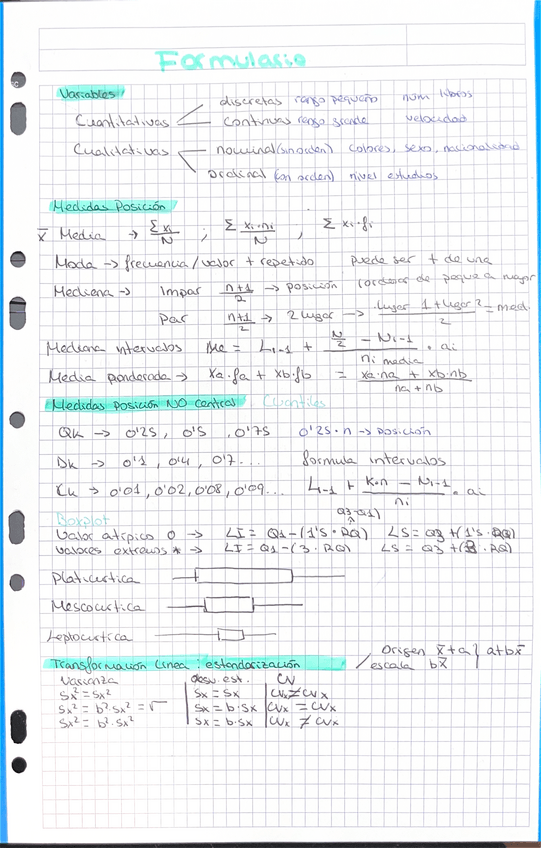 Formulario
Variables
Cuantitativas discretas rango pequeño num libros
continuas rango grande velocidad
Cualitativas nominal (sin orden) colores, sexo, nacionalidad
ordinal (con orden) nivel estudios
Medidas Posición
x̄ Media → Σxi/N ; Σ xi·ni/N ; Σ xi·fi
Moda → frecuencia/valor + repetido puede ser + de una
Mediana → Impar n+1/2 → posición (ordenar de peque a mayor
Par n+1/2 → 2 lugar → lugar 1 + lugar 2/2 = med.
Mediana intervalos Me = Li-1 + (N/2 - Ni-1)/ni media · ai
Media ponderada → xa·fa + xb·fb = xa·na + xb·nb/na + nb
Medidas posición NO central: Cuantiles
Qk → 0'25, 0'5, 0'75 0'25·n → posición
Dk → 0'1, 0'4, 0'7... formula intervalos
Ck → 0'01, 0'02, 0'08, 0'09... Li-1 + K·n - Ni-1/ni · ai
Boxplot Q3-Q1)
Valor atípico o → LI = Q1-(1'5·RQ) LS = Q3+(1'5·RQ)
valores extremos * → LI = Q1-(3·RQ) LS = Q3+(3·RQ)
Platicurtica
Mesocurtica
Leptocurtica
Transformación linea: estandarización Origen x̄+a } a+bx̄
/escala bx̄
Varianza desv. est. CV
Sx² = Sx² Sx = Sx CVx ≠ CVx
Sx² = b²·Sx² = √ Sx = b·Sx CVx = CVx
Sx² = b²·Sx² Sx = b·Sx CVx ≠ CVx